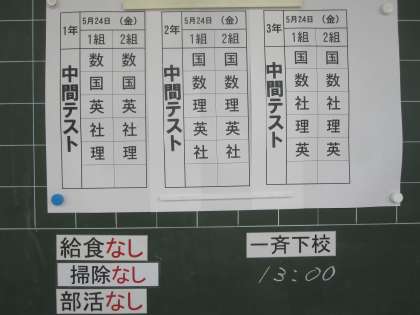 1年 5月24日 (金)
1組 2組
中間テスト
数 数
国 国
英 英
社 社
理 理
2年 5月24日 (金)
1組 2組
中間テスト
国 国
数 数
理 理
英 英
社 社
3年 5月24日 (金)
1組 2組
中間テスト
国 国
数 数
社 社
理 理
英 英
給食なし
掃除なし
部活なし
一斉下校
13:00